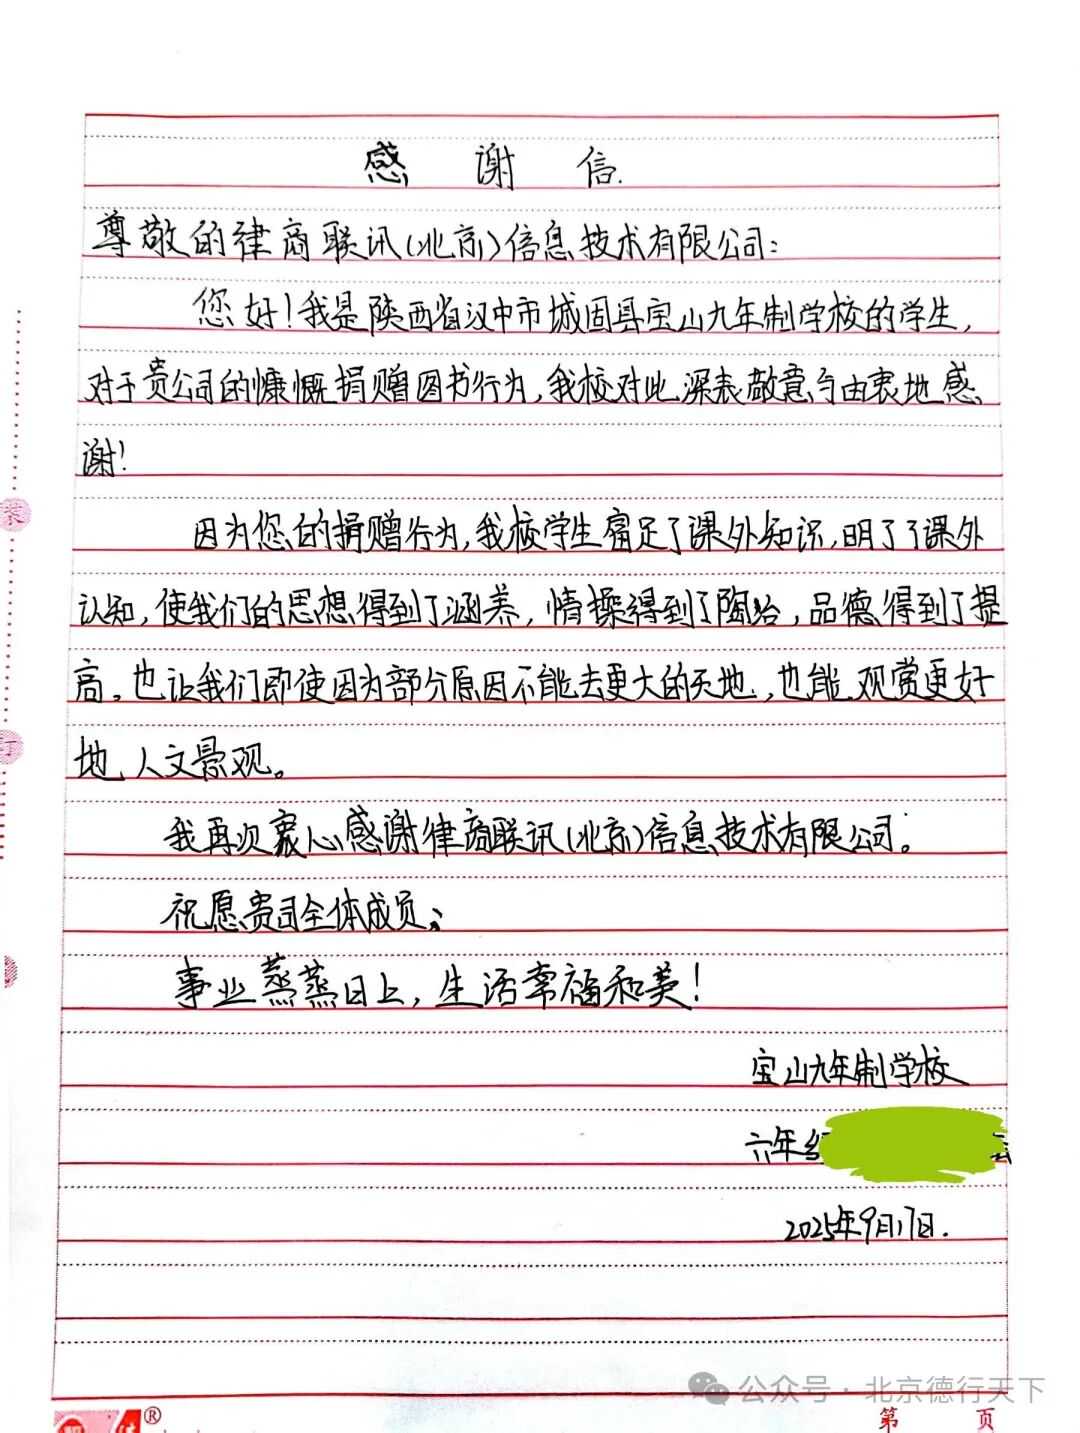 感谢信.
尊敬的律商联讯(北京)信息技术有限公司:
您好!我是陕西省汉中市城固县宝山九年制学校的学生,
对于贵公司的慷慨捐赠图书行为,我校对此深表敬意与由衷地感
谢!
因为您的捐赠行为,我校学生富足了课外知识,明了了课外
认知,使我们的思想得到了涵养,情操得到了陶冶,品德得到了提
高。也让我们即使因为部分原因不能去更大的天地,也能观赏更好
地人文景观。
我再次衷心感谢律商联讯(北京)信息技术有限公司。
祝愿贵司全体成员:
事业蒸蒸日上,生活幸福和美!
宝山九年制学校
六年级
2025年9月17日.
装
订
公众号·北京德行天下
第 页